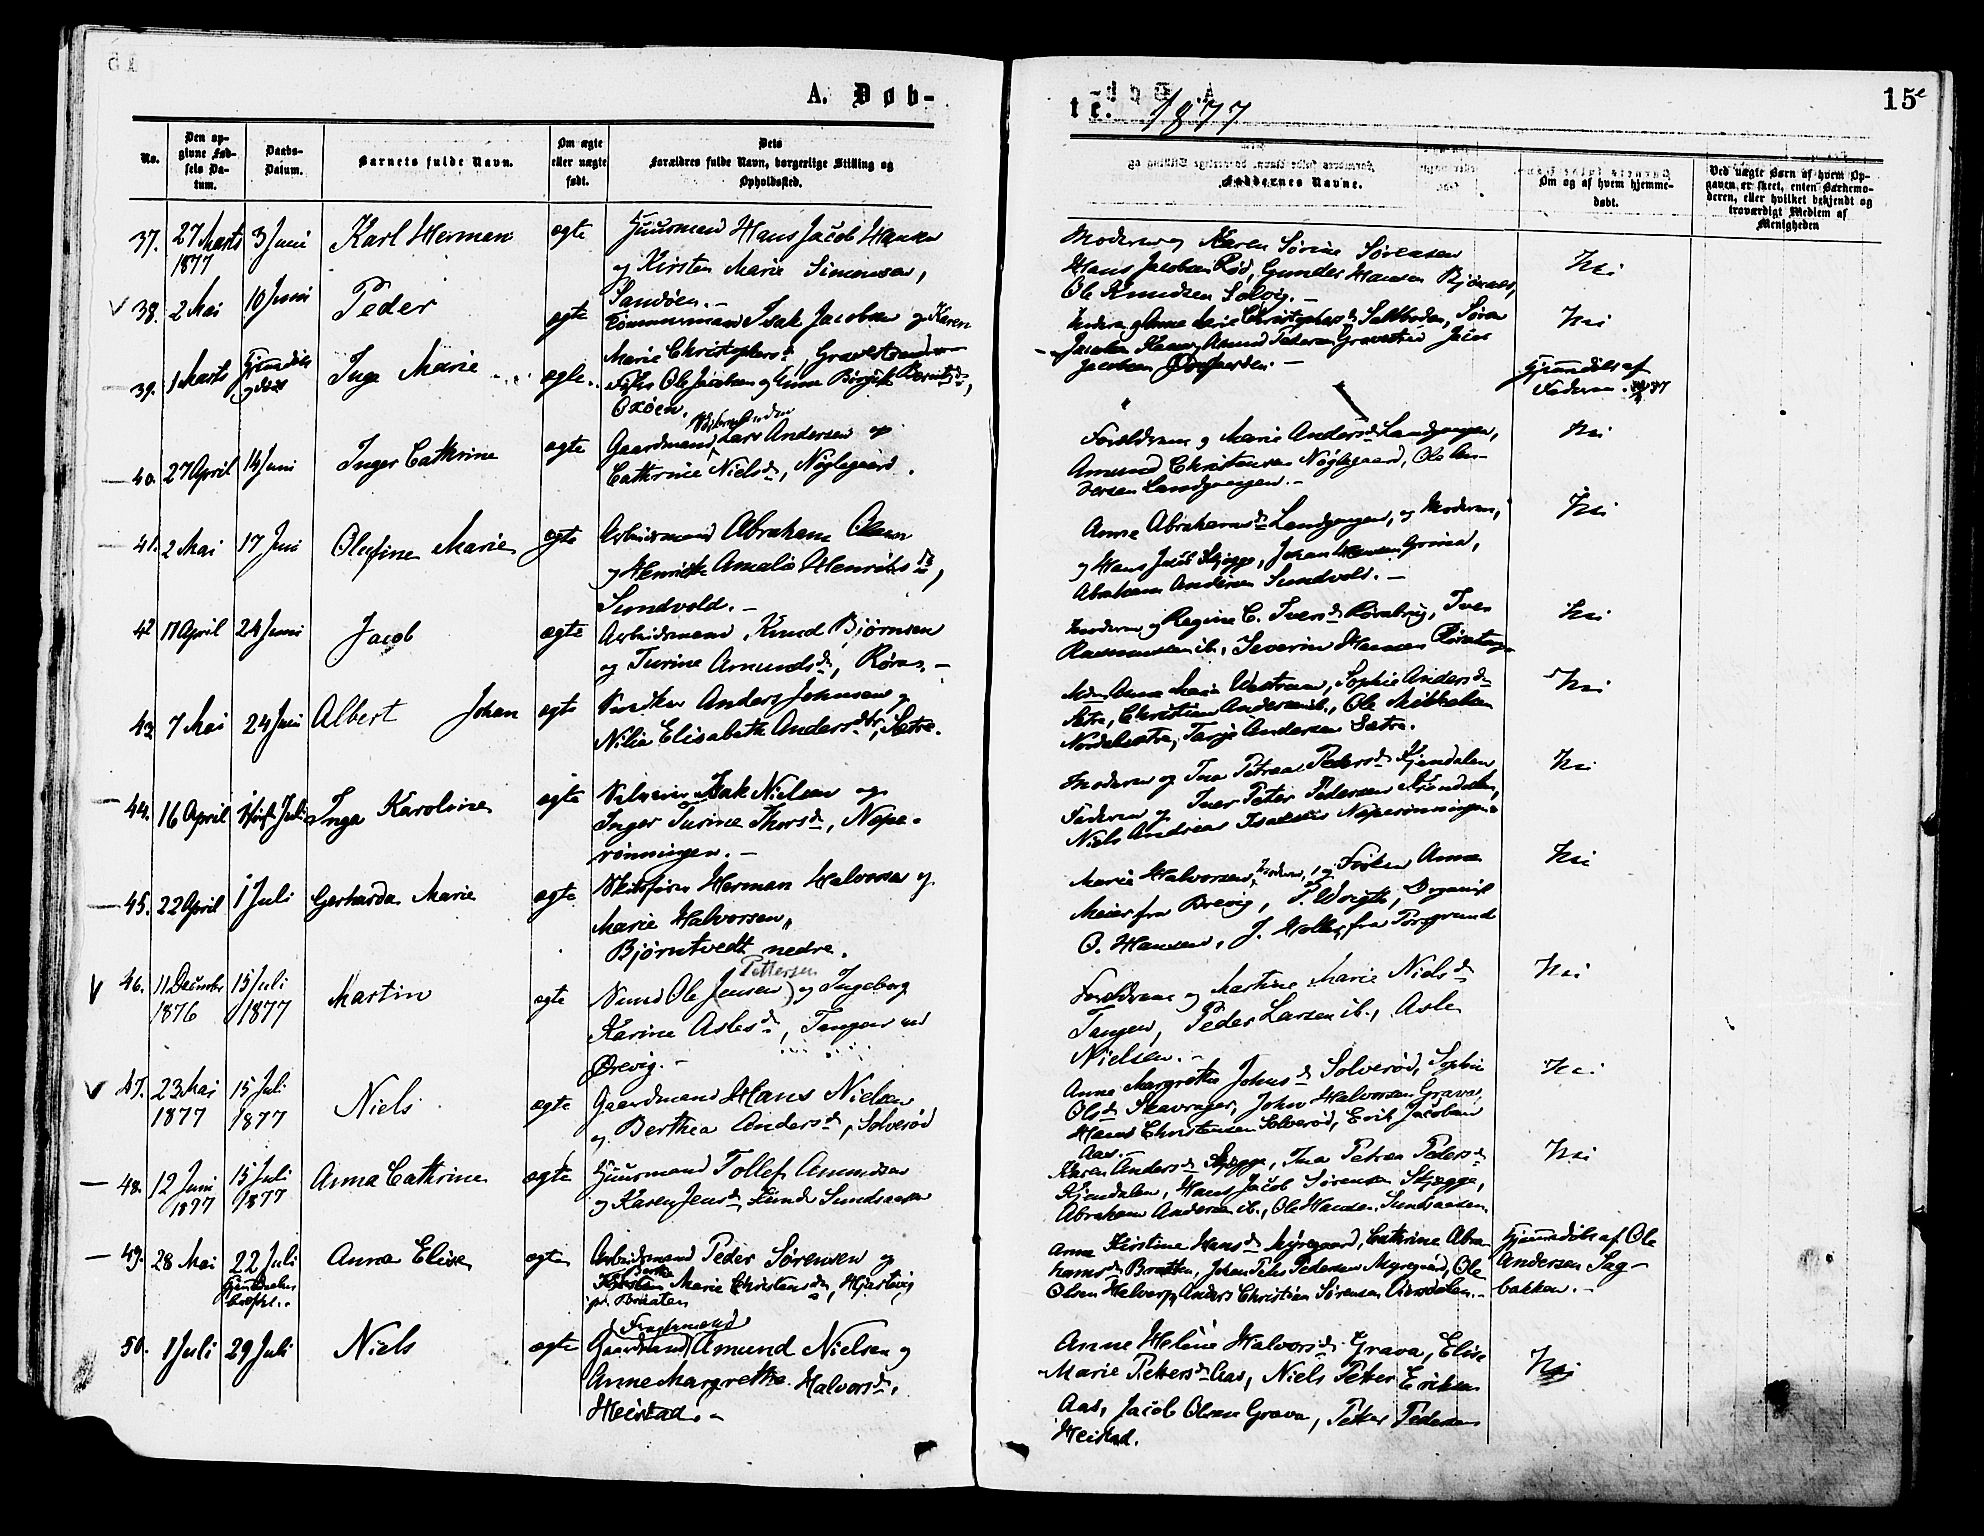 A. Døb-
te. 1877
15
No.
Den op-
givne Fød-
sels Da-
tum.
Daabs-
Datum.
Barnets fulde Navn.
Om ægte
eller uægte
født.
Dets
Forældres fulde Navn, borgerlige Stilling og
Opholdssted.
Faddernes Navne.
Om og af hvem hjemme-
døbt.
Ved uægte Børn af hvem Op-
gaven er skeet, enten Barnemo-
deren, eller hvilket bekjendt og
troværdigt Medlem af
Menigheden
37. 27 Marts 1877 3 Juni Karl Herman ægte Huusmand Hans Jacob Hansen
og Kirsten Marie Simonsen,
Sandøen.-
Moderen og Karen Sørine Sørensen
Hans Jacobsen Rød, Gunder Hansen Bjørnæs,
Ole Knudsen Solvig.-
Nei
38. 2 Mai 10 Juni Peder ægte Tømmermand Isak Jacobsen og Karen
Marie Christophersd, Gravestrand
Moderen og Anne Marie Christophersd Saltboden, Søren
Jacobsen Amund Petersen Gravestrand Jacob
Jacobsen
Nei
39. 1 Marts Hjemmedøbt og død Inge Marie ægte.
Fisker Ole Jacobsen og Anne Birgith Berntsd,
Oxøen.
Hjemmedøbt af
Faderen.
40. 27 April 14 Juni Inger Cathrine ægte Gaardmand Lars Andersen og
Cathrine Nielsd, Nøglegaard.
Forældrene og Marie Andersd Landgangen,
Amund Christensen Nøglegaard, Ole An-
dersen Landgangen.-
Nei
41. 2 Mai 17 Juni Olufine Marie ægte Arbeidsmand Abraham Olsen
og Henrikke Amalie Henriksd,
Sundvold.-
Anne Abrahamsd Landgangen, og Moderen,
og Hans Jacob Skjegge, Johan Hansen Grinid,
Abraham Andersen Sundvold.-
Nei
42 17 April 24 Juni Jacob ægte Arbeidsmand Knud Bjørnsen
og Turine Amundsd, Røra.-
Moderen og Regine C. Iversd Rørabrug, Iver
Rasmussen ib., Severin Hansen
Nei
43 7 Mai 24 Juni Albert Johan ægte Snedker Anders Johnsen og
Nilia Elisabeth Andersdtr, Sætre.
Anne Marie Westrum, Sophie Andersd
Sætre, Christian Andersen ib., Ole Mikkelsen
Nordalsætre, Tarje Andersen Sætre.
Nei
44. 16 April 1 Juli Inga Karoline ægte Isak Nielsen og
Inger Turine Thorsd, Nape-
rønningen.-
Moderen og Ina Petrea Pedersd Kjendalen
Faderen og Iver Peter Pedersen
Niels Andreas Isaksen Naperønningen.
Nei
45. 22 April 1 Juli Gerharda Marie ægte Skibsfører Herman Halvorsen og
Marie Halvorsen,
Bjørntvedt nedre.
Marie Halvorsen, Moderen, og Frøken Anna
Meier fra Brevig, P. Voigts, Organist
O. Hansen, J. Møller, fra Porsgrund
Nei
46. 11 Decembr 1876 15 Juli 1877 Martin ægte Ole Jensen Pettersen og Ingeborg
Karine Aslesd, Tangen ved
Brevig.-
Forældrene og Martine Marie Nielsd
Tangen, Peder Larsen ib., Asle
Nielsen.-
Nei
47. 23 Mai 1877 15 Juli 1877 Niels ægte Gaardmand Hans Nielsen
og Berthea Andersd, Solverød
Anne Margrethe Johnsd Solverød, Sophie
Olsd Skavrager, John Halvorsen Grava,
Hans Christensen Solverød, Erik Jacobsen
Aas.-
Nei
48. 12 Juni 1877 15 Juli 1877 Anna Cathrine ægte Huusmand Tollef Amundsen
og Karen Jensd, Lunde Sundsaasen
Karen Andersd Skjegge, Ina Petrea Pedersd
Kjendalen, Hans Jacob Sørensen Skjegge,
Abraham Andersen ib., Ole Hansen Sundsaasen.
Nei
49. 28 Mai 22 Juli Anna Elise ægte Arbeidsmand Peder Sørensen og
Marie Christensd, Hjartvig
pr. Braaten
Anne Kirstine Hansd Myregaard, Cathrine Abra-
hamsd Braathen, Johan Peter Pedersen Myregaard, Ole
Olsen Halvorp, Anders Christian Sørensen
Hjemmedøbt af Ole
Andersen Sag-
bakken.-
50. 1 Juli 29 Juli Niels ægte Gaardmand Amund Nielsen og
Anne Margrethe Halvorsd,
Heistad.-
Anne Heléne Halvorsd Grava, Elise
Marie Pettersd Aas, Niels Petter Eriksen
Aas, Jacob Olsen Grava, Petter Pedersen
Heistad.
Nei